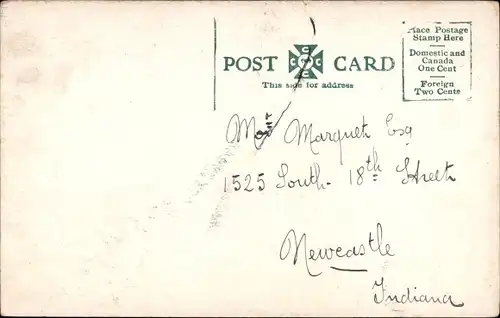 POST CARD
This side for address
Place Postage
Stamp Here
Domestic and
Canada
One Cent
Foreign
Two Cents
Mr Marquet Esq
1525 South 18th Street
Newcastle
Indiana